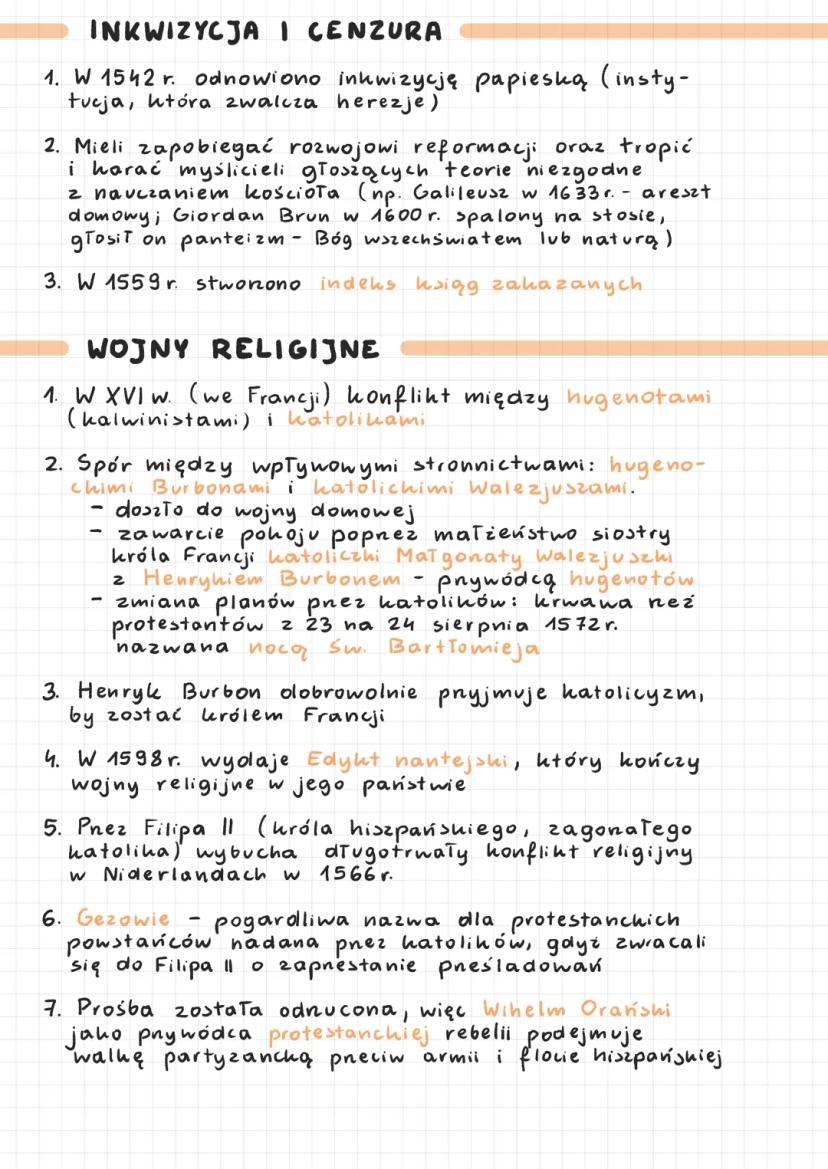 INKWIZYCJA I CENZURA
1. W 1542 r. odnowiono inkwizycję papieską (insty-
tucja, która zwalcza herezje)
2. Mieli zapobiegać rozwojowi reformacji oraz tropić
i karać myślicieli głoszących teorie niezgodne
z nauczaniem kościoła (np. Galileusz w 1633 r. - areszt
domowy; Giordan Brun w 1600 r. spalony na stosie,
głosił on panteizm - Bóg wszechświatem lub naturą)
3. W 1559 r. stworzono indeks ksiąg zakazanych
WOJNY RELIGIJNE
1. W XVI w. (we Francji) konflikt między hugenotami
(kalwinistami) i katolikami
2. Spór między wpływowymi stronnictwami: hugeno-
ckimi Burbonami i katolickimi Walezjuszami.
- doszło do wojny domowej
- zawarcie pokoju poprzez małżeństwo siostry
króla Francji katoliczki Małgorzaty Walezjuszki
z Henrykiem Burbonem - przywódcą hugenotów
- zmiana planów przez katolików: krwawa rzeź
protestantów z 23 na 24 sierpnia 1572 r.
nazwana nocą św. Bartłomieja
3. Henryk Burbon dobrowolnie przyjmuje katolicyzm,
by zostać królem Francji
4. W 1598 r. wydaje Edykt nantejski, który kończy
wojny religijne w jego państwie
5. Przez Filipa II (króla hiszpańskiego, zagorzałego
katolika) wybucha długotrwały konflikt religijny
w Niderlandach w 1566 r.
6. Gezowie - pogardliwa nazwa dla protestanckich
powstańców nadana przez katolików, gdyż zwracali
się do Filipa II o zaprzestanie prześladowań
7. Prośba została odrzucona, więc Wihelm Orański
jako przywódca protestanckiej rebelii podejmuje
walkę partyzancką przeciw armii i flocie hiszpańskiej